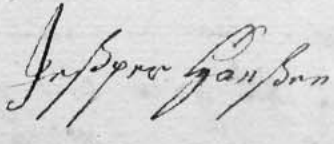 Jeßper Hanßen